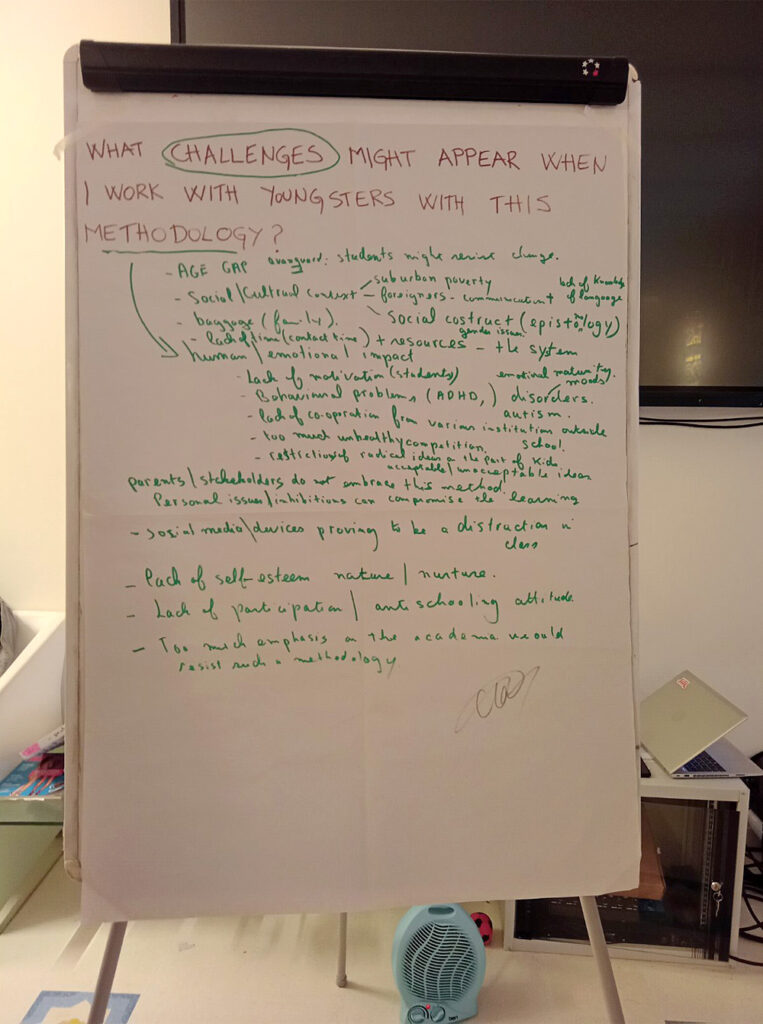 WHAT CHALLENGES MIGHT APPEAR WHEN
I WORK WITH YOUNGSTERS WITH THIS
METHODOLOGY?
- AGE GAP avanguard: students might resist change.
- Social/Cultural context
suburban poverty
- foreigners - communication
lack of knowledge
of language
Social costruct (epistomology)
- baggage (family).
gender issues
- lack of time (contact time) + resources - the system
human/emotional impact
- Lack of motivation (students)
emotional maturity.
moods
- Behavioural problems (ADHD,) disorders.
autism.
- lack of co-operation from various institution outside
school.
- too much unhealthy competition.
- restriction of radical ideas on the part of kids
acceptable/unacceptable ideas
parents/stakeholders do not embrace this method.
Personal issues/inhibitions can compromise the learning
- social media/devices proving to be a distraction in
class
- lack of self-esteem nature/nurture.
- Lack of participation/anti schooling attitude
- Too much emphasis on the academia would
resist such a methodology